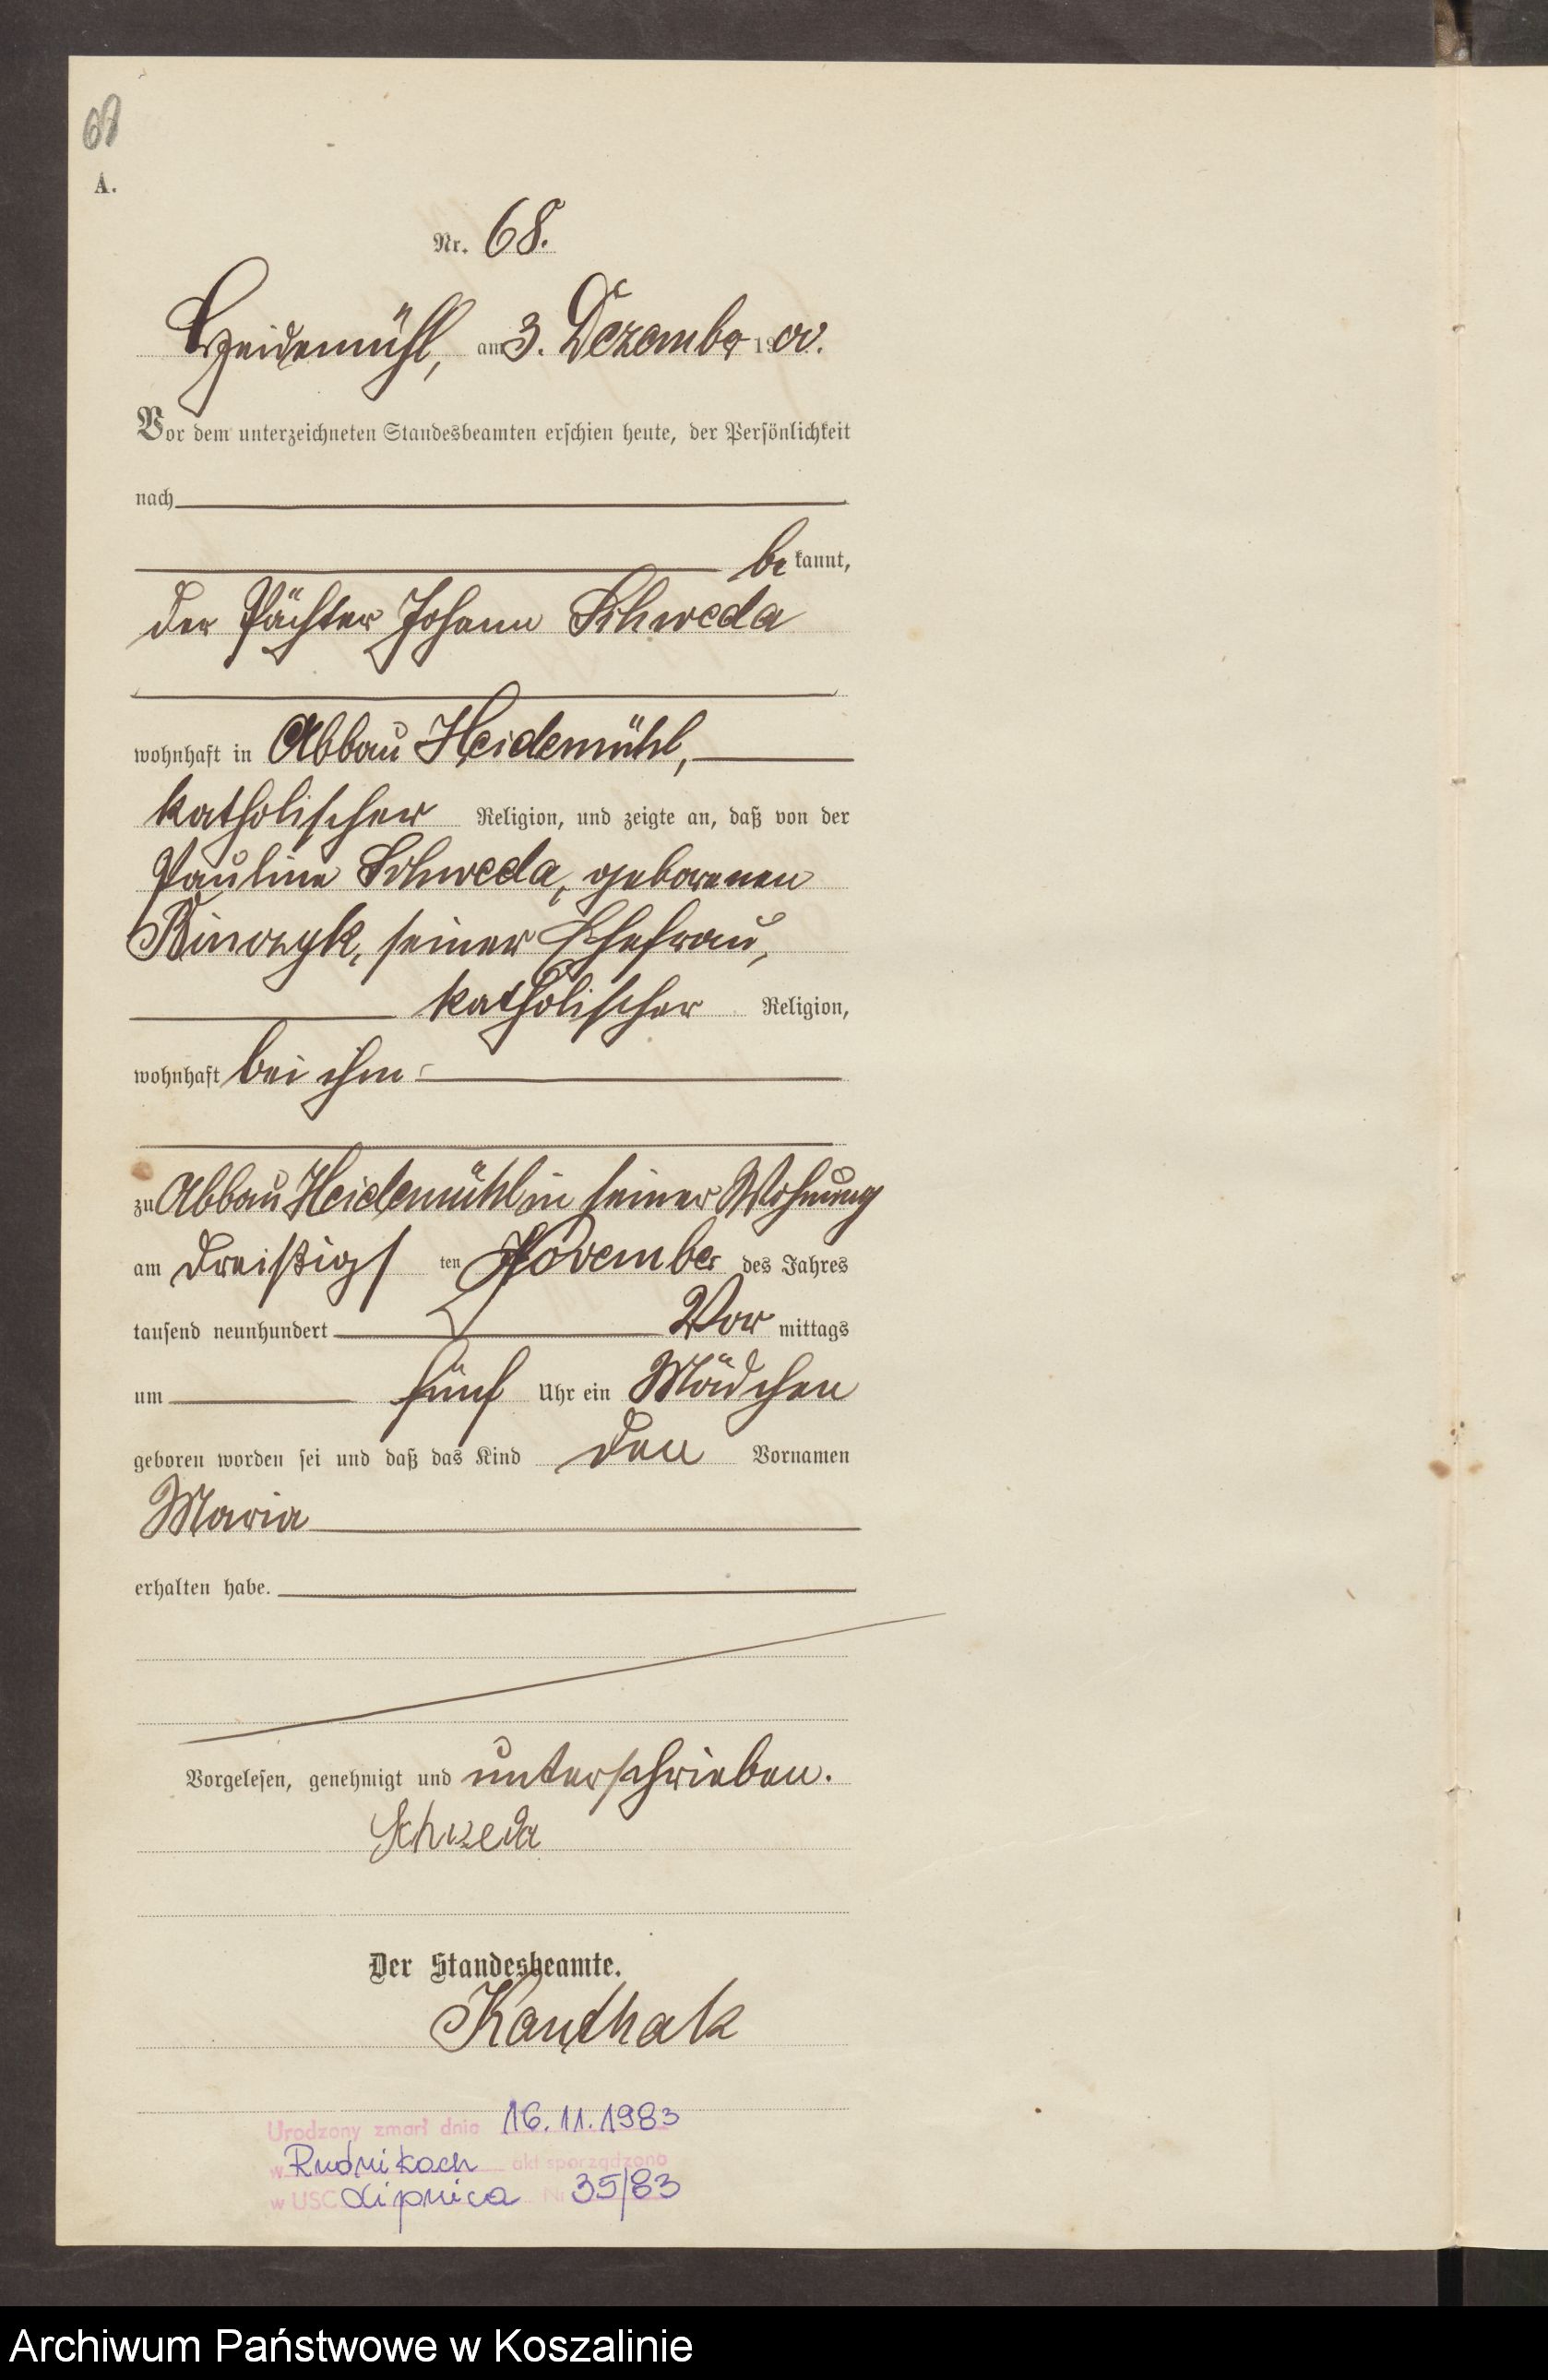 68
A.
Nr. 68.
Heidemühl, am 3. Dezember 1900.
Vor dem unterzeichneten Standesbeamten erschien heute, der Persönlichkeit
nach
be kannt,
der Pächter Johann Schweda
wohnhaft in Abbau Heidemühl,
katholischer Religion, und zeigte an, daß von der
Pauline Schweda, geborenen
Binczyk, seiner Ehefrau,
katholischer Religion,
wohnhaft bei ihm
zu Abbau Heidemühl in seiner Wohnung
am dreißigs ten November des Jahres
tausend neunhundert Vor mittags
um fünf Uhr ein Mädchen
geboren worden sei und daß das Kind den Vornamen
Maria
erhalten habe.
Vorgelesen, genehmigt und unterschrieben.
Schweda
Der Standesbeamte.
Kauthak
Urodzony zmarł dnia 16.11.1983
w Rudnikach akt sporządzono
w USC Lipnica Nr 35/83
Archiwum Państwowe w Koszalinie